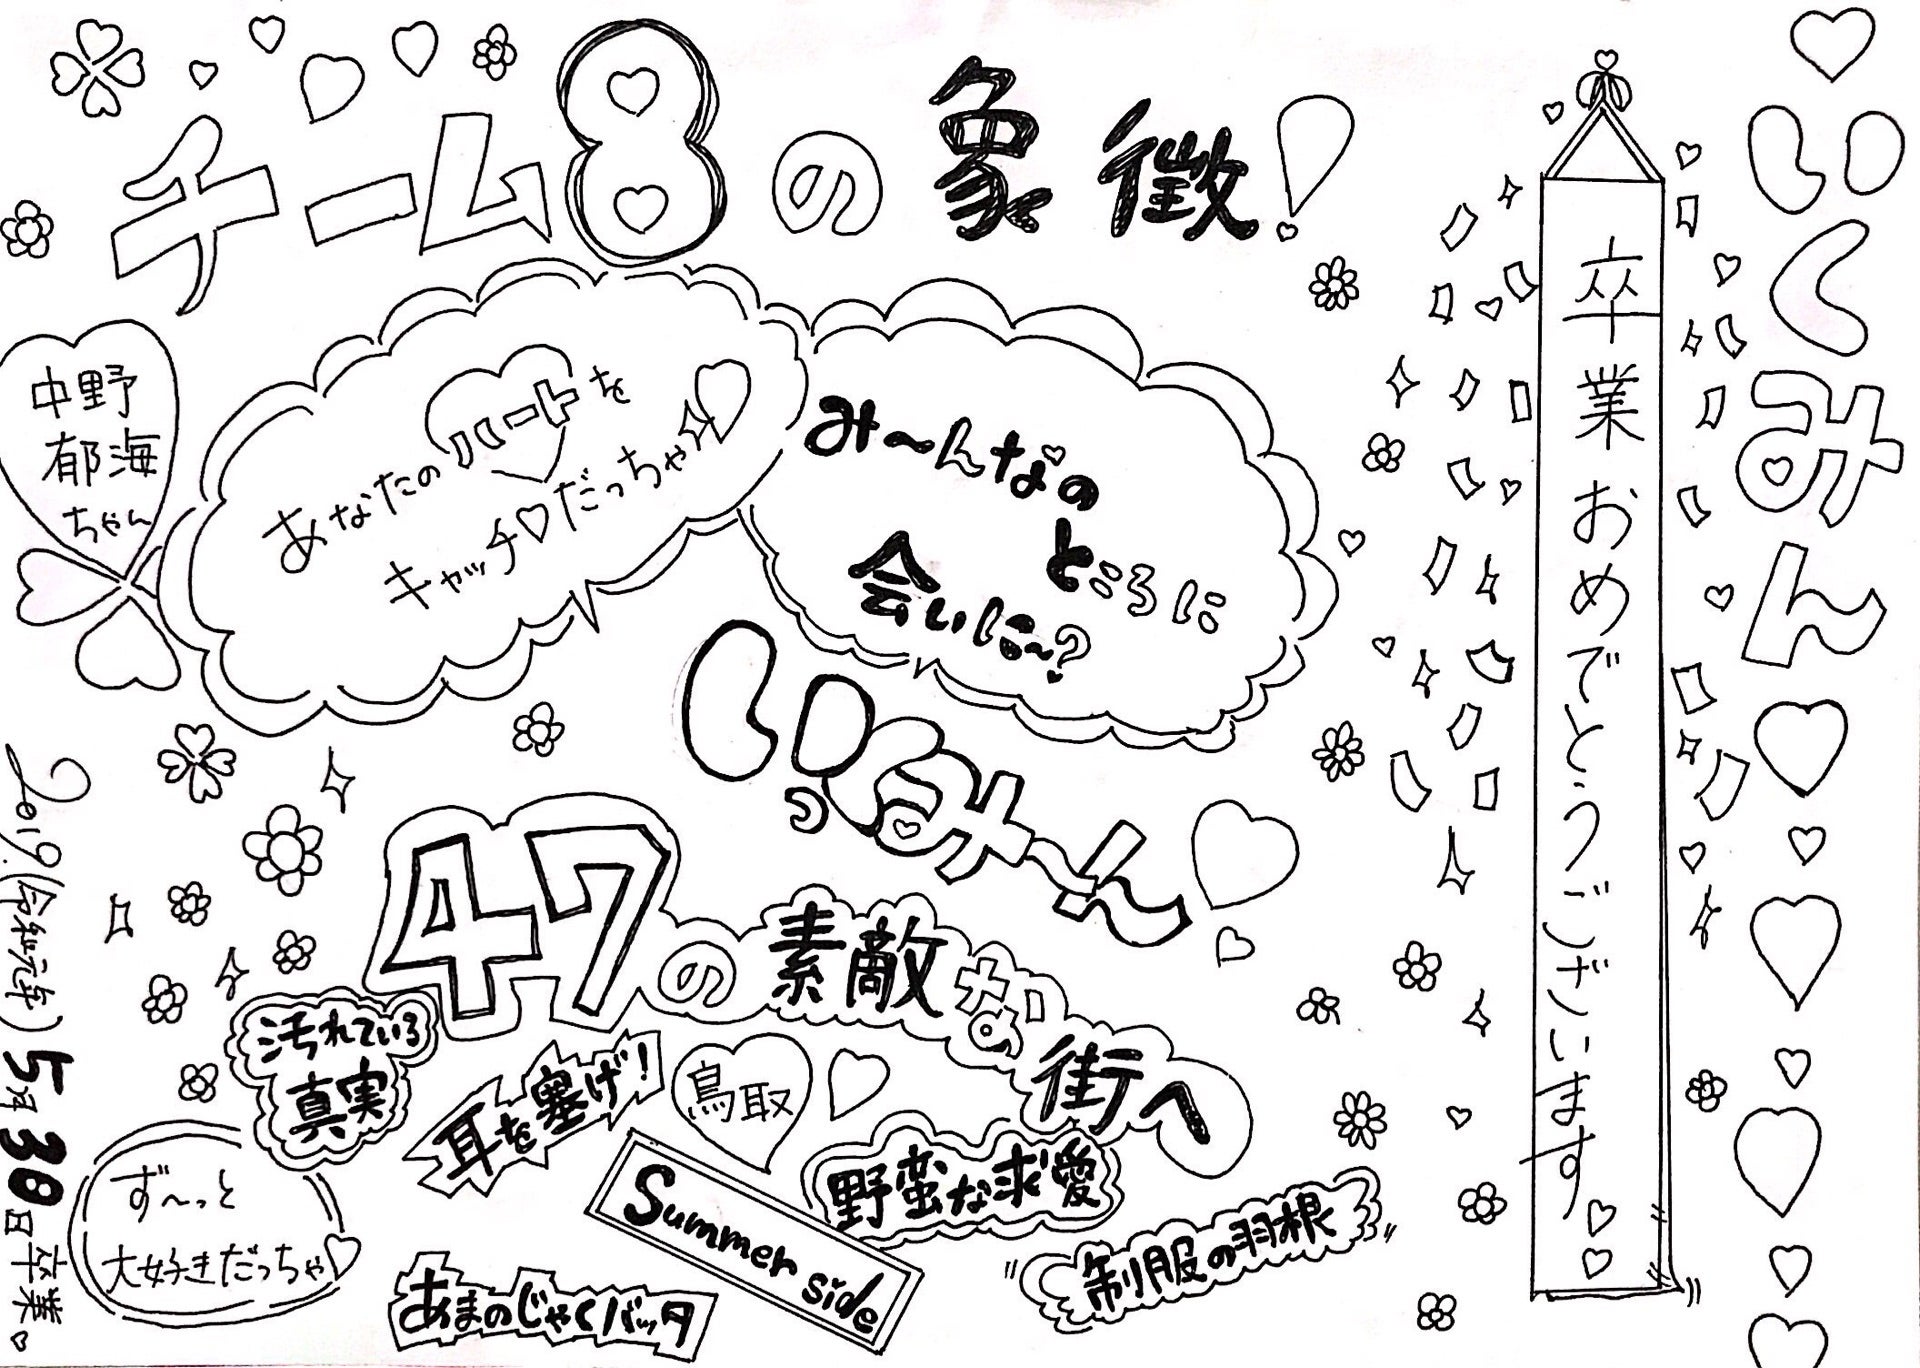 チーム8の象徴!
いくみん
卒業おめでとうございます
中野
郁海
ちゃん
あなたのハートを
キャッチ♡だっちゃ
み〜んなの
ところに
会いに〜?
いくみ〜ん
47の素敵な街へ
汚れている
真実
耳を塞げ!
鳥取
野蛮な求愛
Summer side
制服の羽根
あまのじゃくバッタ
ず〜っと
大好きだっちゃ♡
2019(令和元年)5月30日卒業。